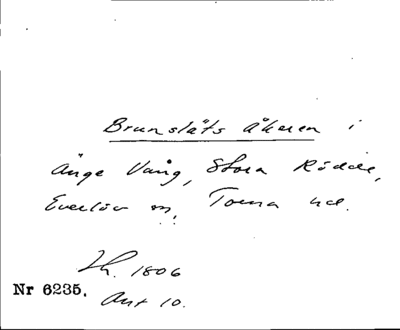 Brunsläts åkeren i
Änge Vång, Stora Rödde,
Everlöv sn, Torna hd.
Lh. 1806
Nr 6235. Akt 10.